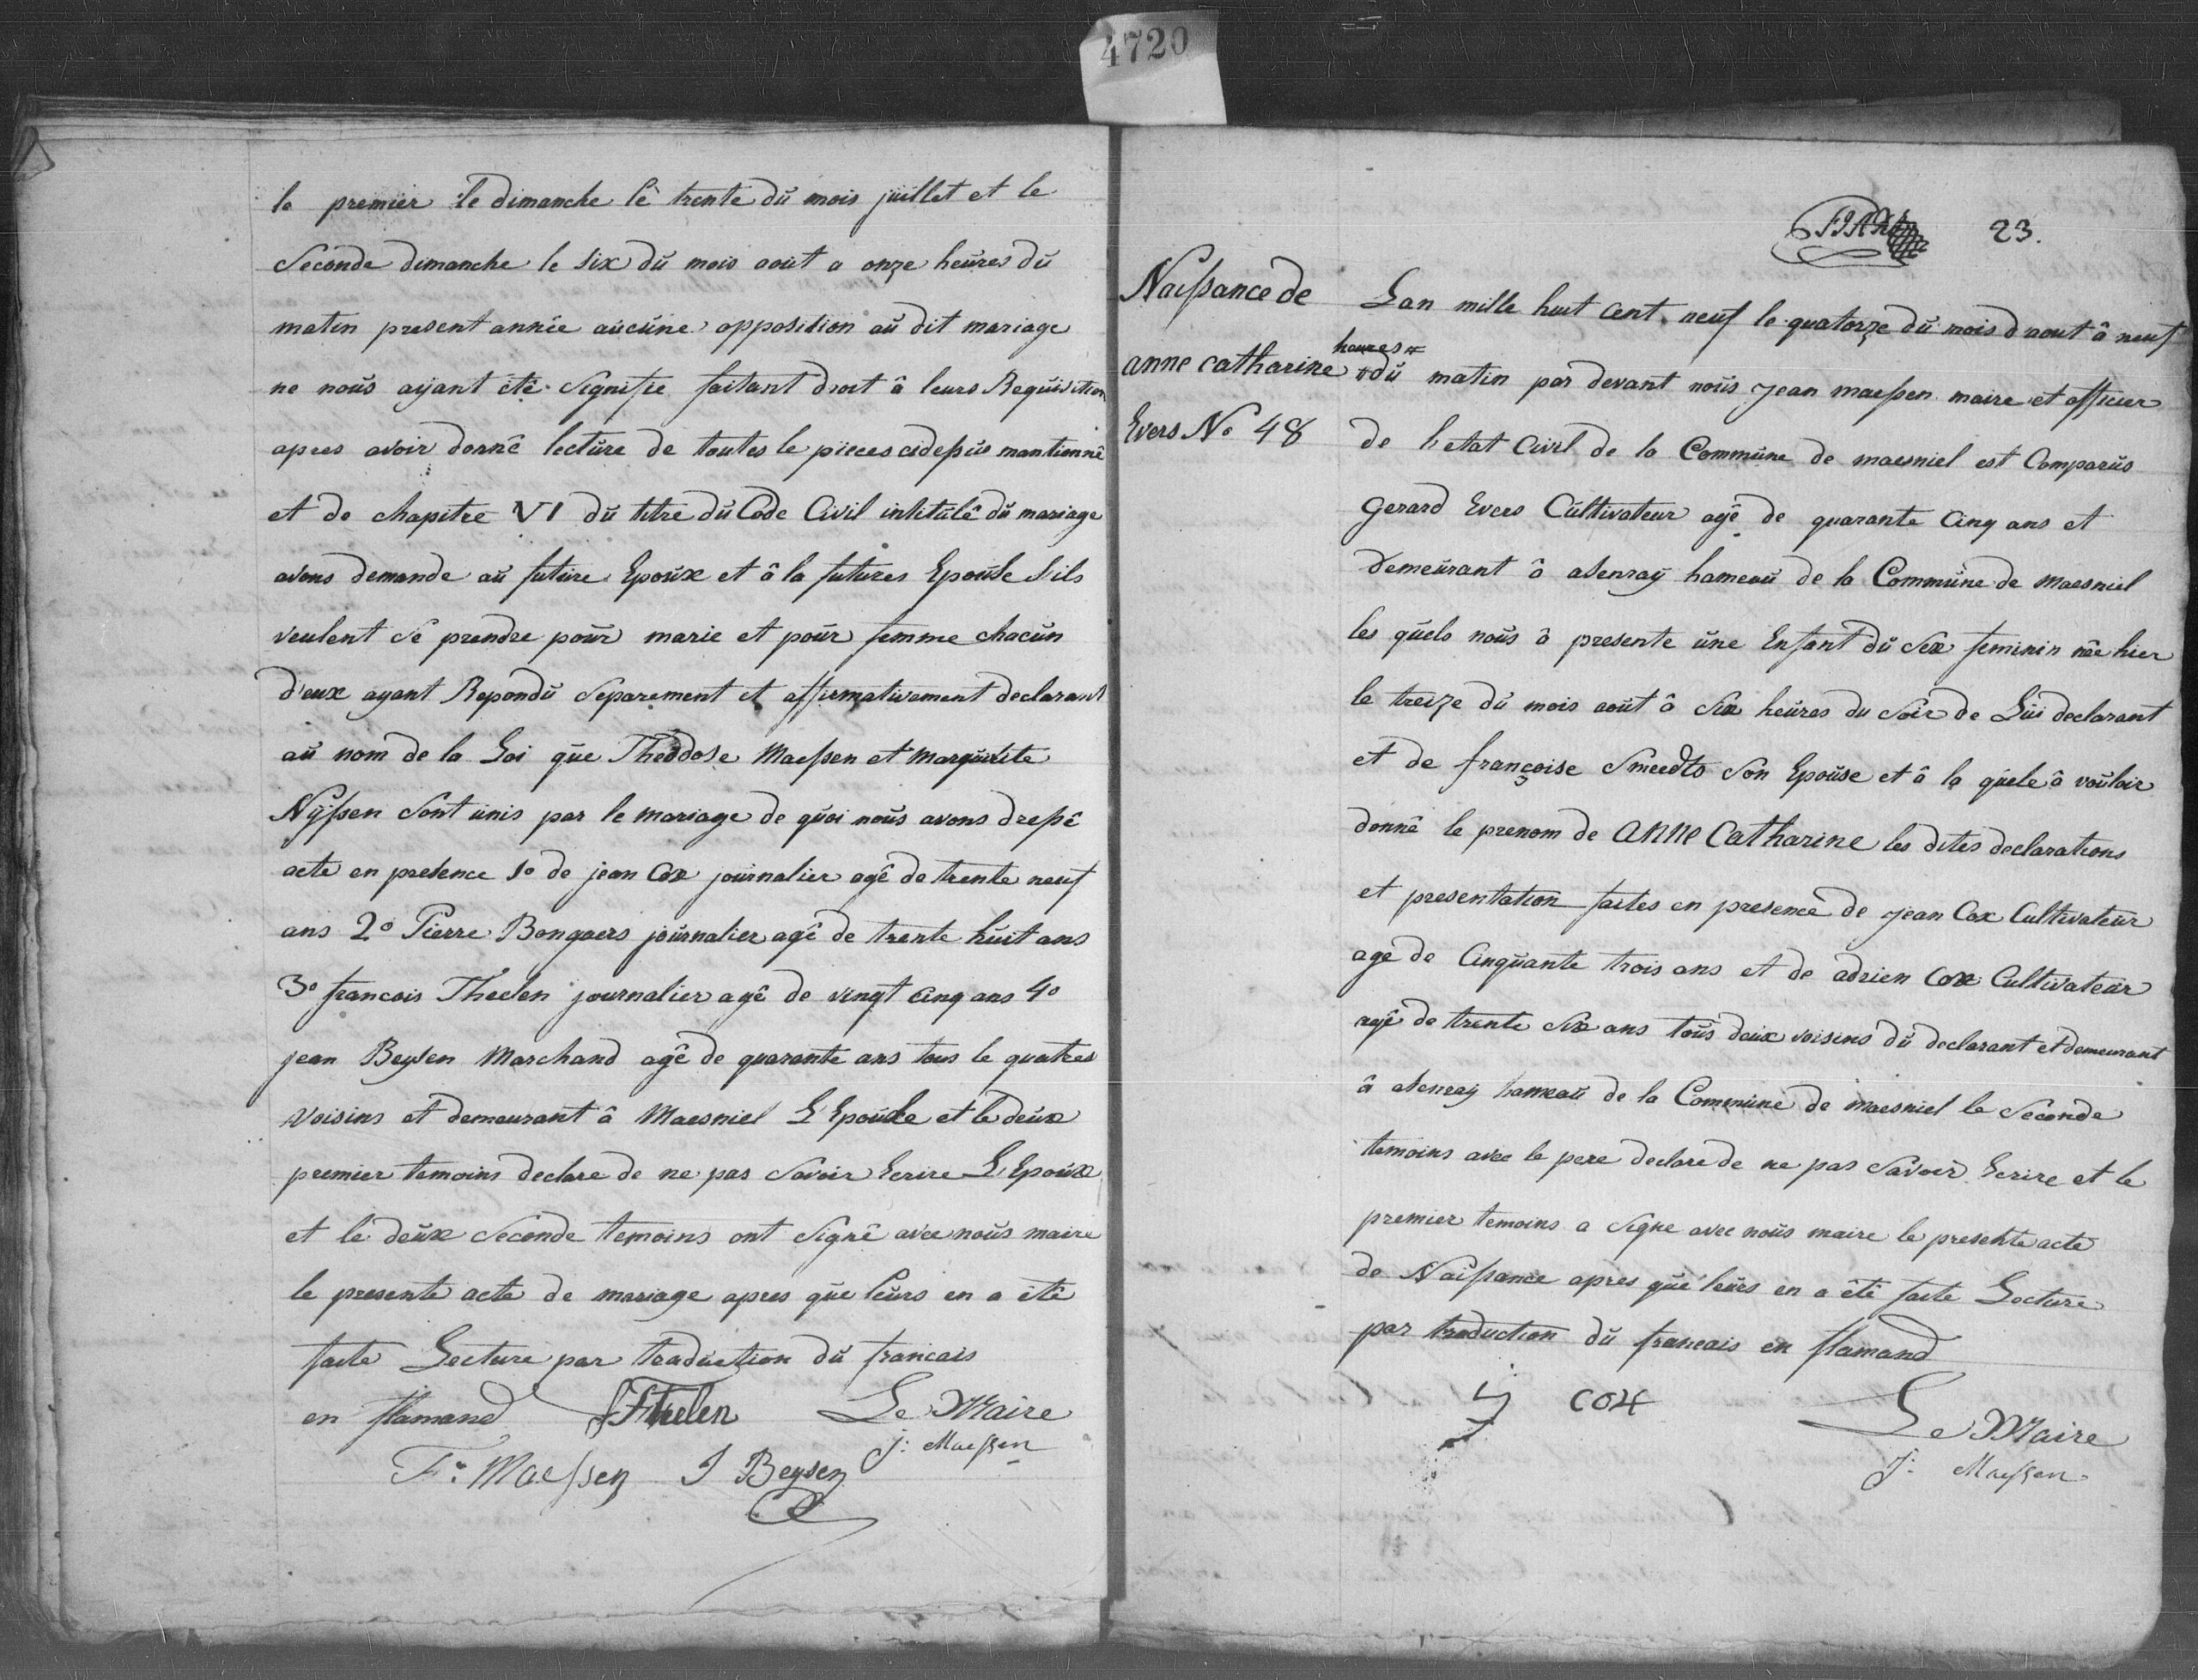 4720
le premier le dimanche le trente du mois juillet et le
seconde dimanche le six du mois aout a onze heures du
matin present année aucune opposition au dit mariage
ne nous ayant été signifie faisant droit â leurs Requisition
apres avoir donné lecture de toutes le pieces cidessus mentionnê
et de chapitre VI du titre du Code Civil intitulê du mariage
avons demande au future Epoux et â la futures Epouse s'ils
veulent se prendre pour marie et pour femme chacun
d'eux ayant Repondu separement et affirmativement declarant
au nom de la Loi que Theodose Maessen et Marguerite
Nyssen sont unis par le mariage de quoi nous avons dressê
acte en presence 1o de jean Cox journalier agê de trente neuf
ans 2o Pierre Bongaers journalier agê de trente huit ans
3o francois Theelen journalier agê de vingt cinq ans 4o
jean Beysen Marchand agê de quarante ans tous le quatres
voisins et demeurant â Maesniel L'Epouse et le deux
premier temoins declare de ne pas savoir Ecrire L'Epoux
et le deux seconde temoins ont signê avec nous maire
le presente acte de mariage apres que leurs en a êtê
faite Lecture par traduction du francais
en flamand Le Maire
J: Maessen
Maessen J Beysen
23.
Naissance de
anne catharine
Evers No 48
Lan mille huit cent neuf le quatorze du mois d'aout â neuf
heures
du matin par devant nous jean maessen maire et officier
de l'etat Civil de la Commune de maesniel est Comparus
Gerard Evers Cultivateur agê de quarante cinq ans et
demeurant â asenray hameau de la Commune de maesniel
les quels nous â presente une Enfant du sex feminin nêe hier
le treize du mois aout â six heures du soir de Lui declarant
et de françoise Smeedts son Epouse et â la quele â vouloir
donnê le prenom de anne Catharine les dites declarations
et presentation faites en presence de jean Cox Cultivateur
age de Cinquante trois ans et de adrien Cox Cultivateur
agê de trente six ans tous deux voisins du declarant et demeurant
â asenray hameau de la Commune de maesniel le seconde
temoins avec le pere declare de ne pas savoir Ecrire et le
premier temoins a signe avec nous maire le presente acte
de Naissance apres que leurs en a êtê faite Lecture
par traduction du francais en flamand
cox
Le Maire
J: Maessen